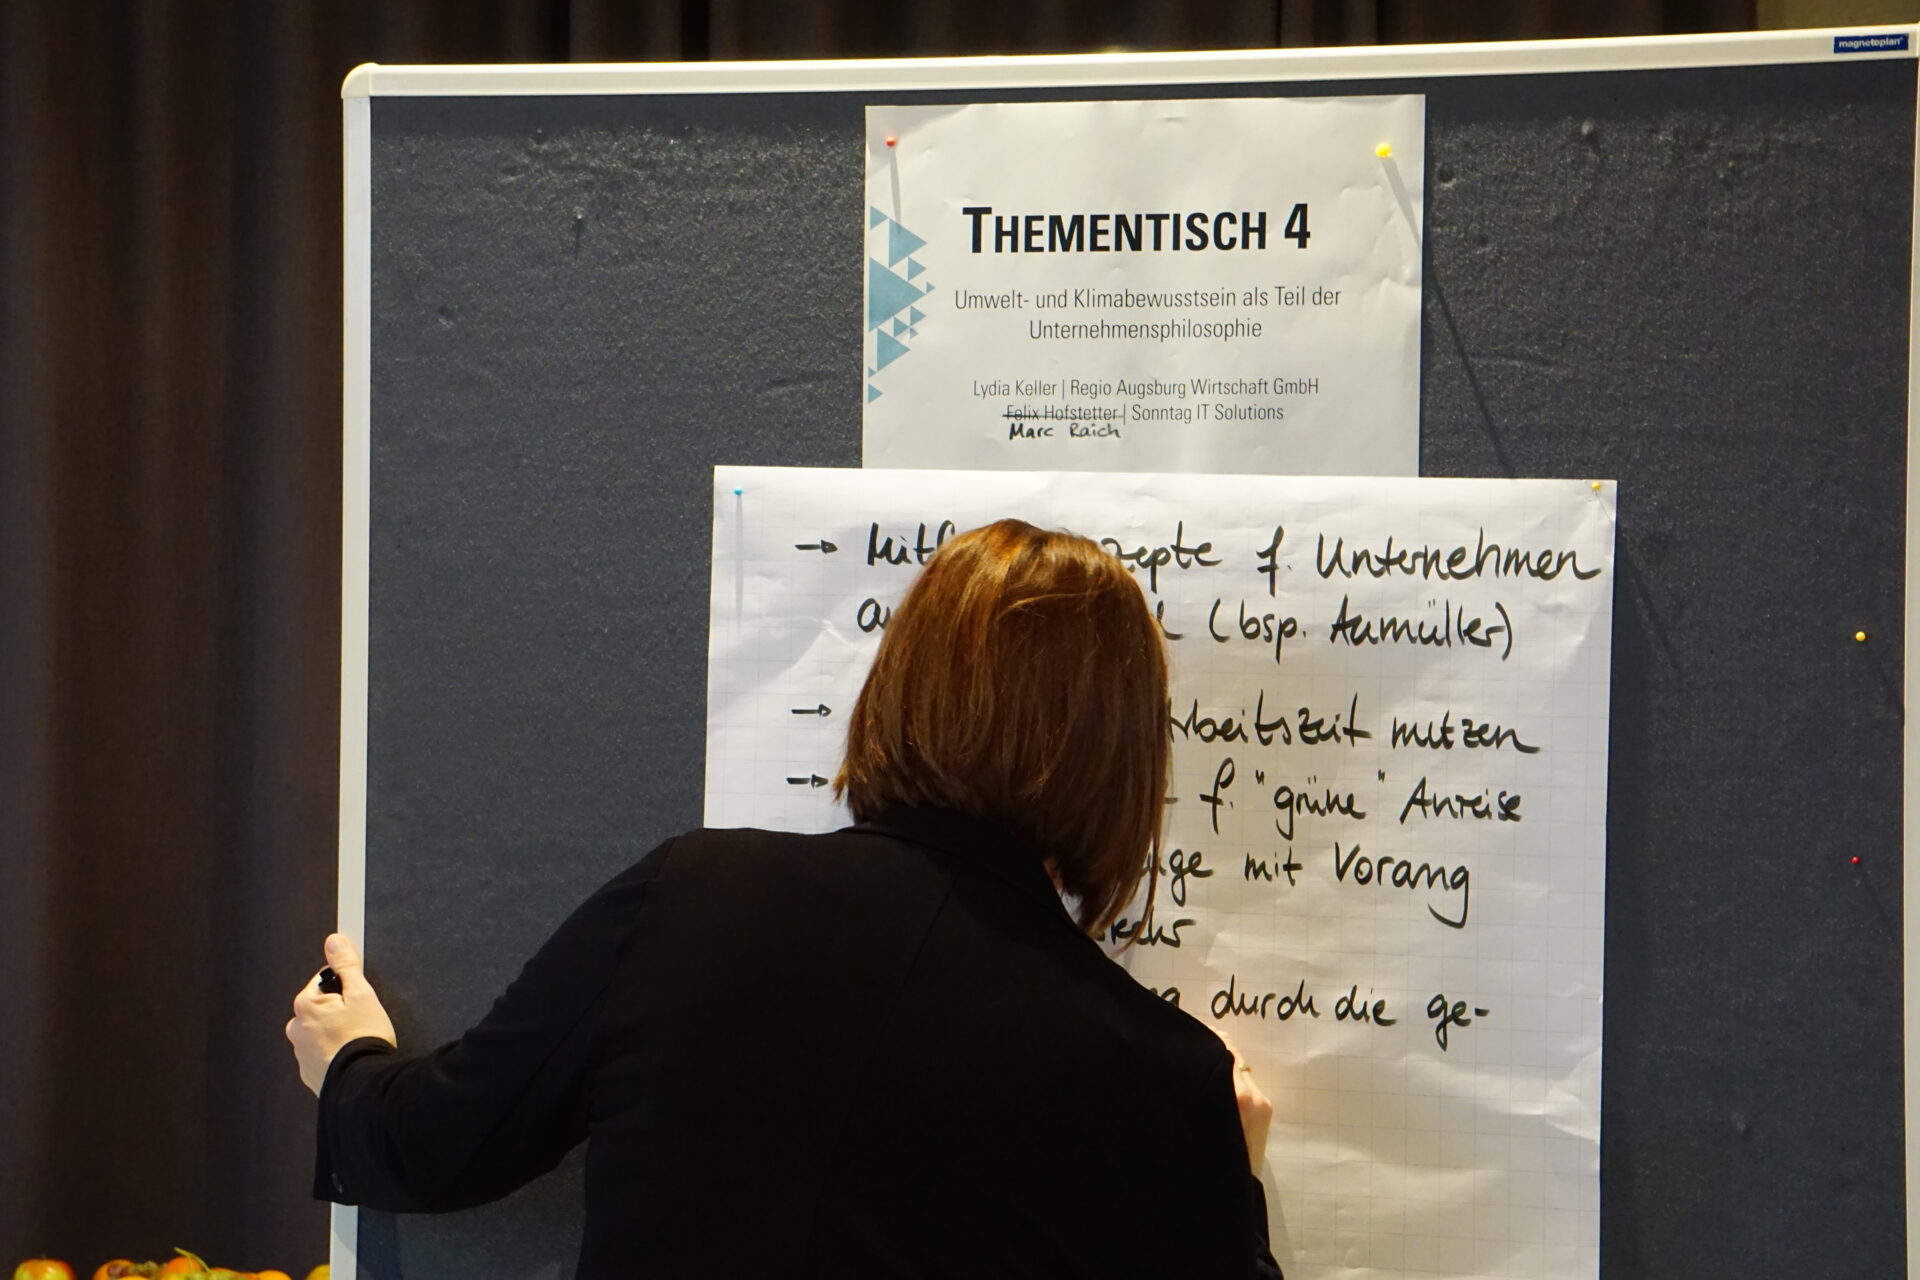 magnetoplan
THEMENTISCH 4
Umwelt- und Klimabewusstsein als Teil der
Unternehmensphilosophie
Lydia Keller | Regio Augsburg Wirtschaft GmbH
Felix Hofstetter | Sonntag IT Solutions
Marc Raich
→ f. Unternehmen
(bsp. Aumüller)
→ Arbeitszeit nutzen
→ f. "grüne" Anreise
mit Vorang
durch die ge-